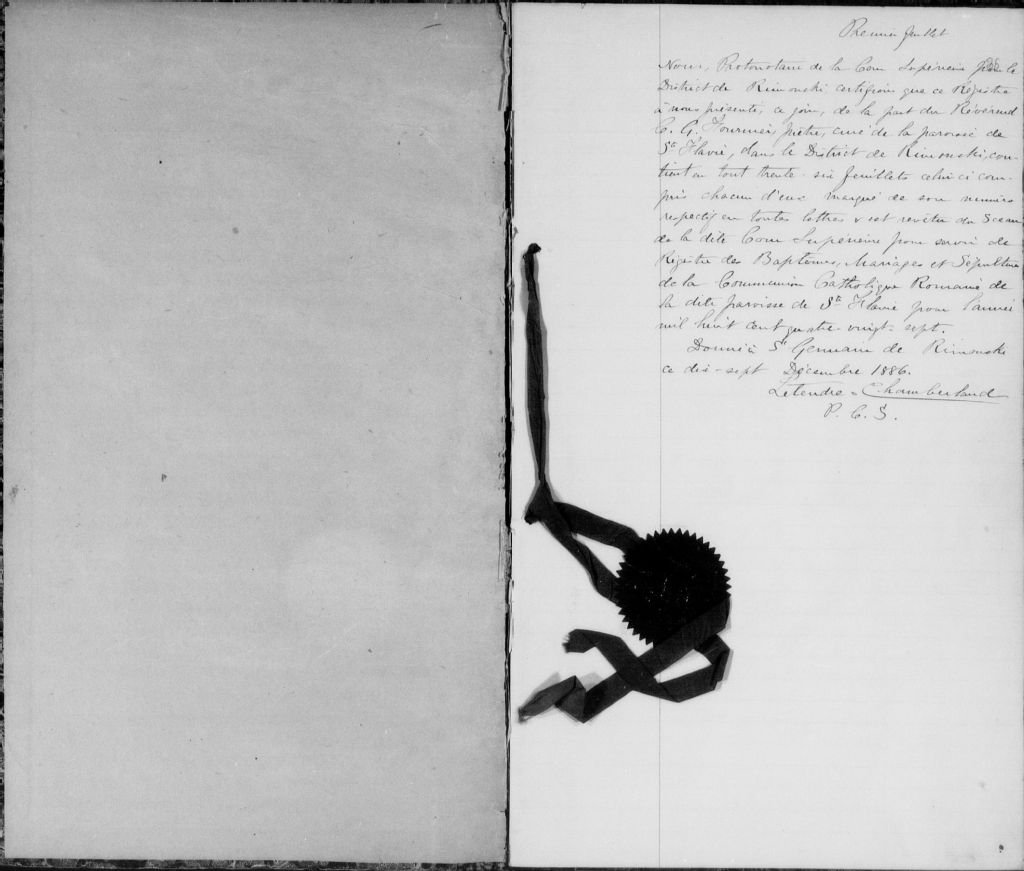 Premier feuillet
Nous, Protonotaire de la Cour Supérieure pour le
District de Rimouski certifions que ce Régistre
à nous présenté, ce jour, de la part du Révérend
C. G. Fournier, prêtre, curé de la paroisse de
Ste Flavie, dans le District de Rimouski, con-
tient en tout trente-six feuillets celui ci com-
pris chacun d'eux marqué de son numéro
respectif en toutes lettres & est revêtu du Sceau
de la dite Cour Supérieure pour servir de
Régistre des Baptêmes, Mariages et Sépultures
de la Communion Catholique Romaine de
la dite paroisse de Ste Flavie pour l'année
mil huit cent quatre-vingt-sept.
Donné à St Germain de Rimouski
ce dix-sept Décembre 1886.
Letendre & Chamberland
P. C. S.